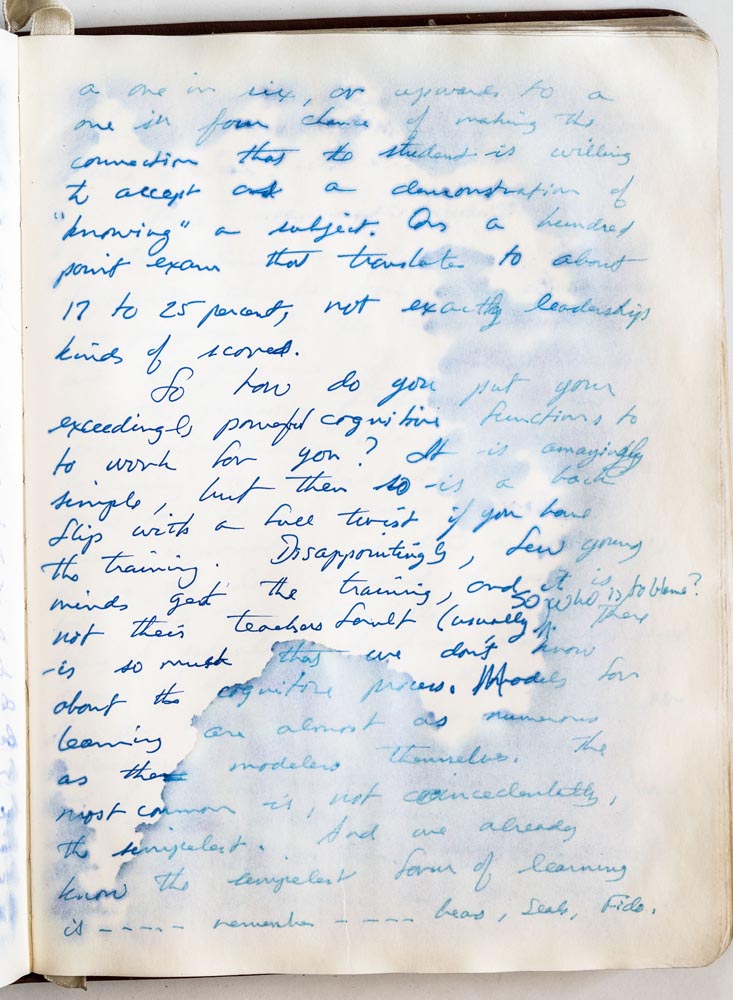 a one in six, or upwards to a
one in four chance of making the
connection that the student is willing
to accept as a demonstration of
"knowing" a subject. On a hundred
point exam that translates to about
17 to 25 percent, not exactly leaderships
kinds of scores.
So how do you put your
exceedingly powerful cognitive functions to
to work for you? It is amazingly
simple, but then so is a back
flip with a full twist if you have
the training. Disappointingly, few young
minds get the training, and it is
So who is to blame?
not their teachers fault (usually). There
is so much that we don't know
about the cognitive process. Models for
learning are almost as numerous
as the modelers themselves. The
most common is, not coincedentally,
the simpelest. And we already
know the simpelest form of learning
is ----- remember ---- bears, Seals, Fido.